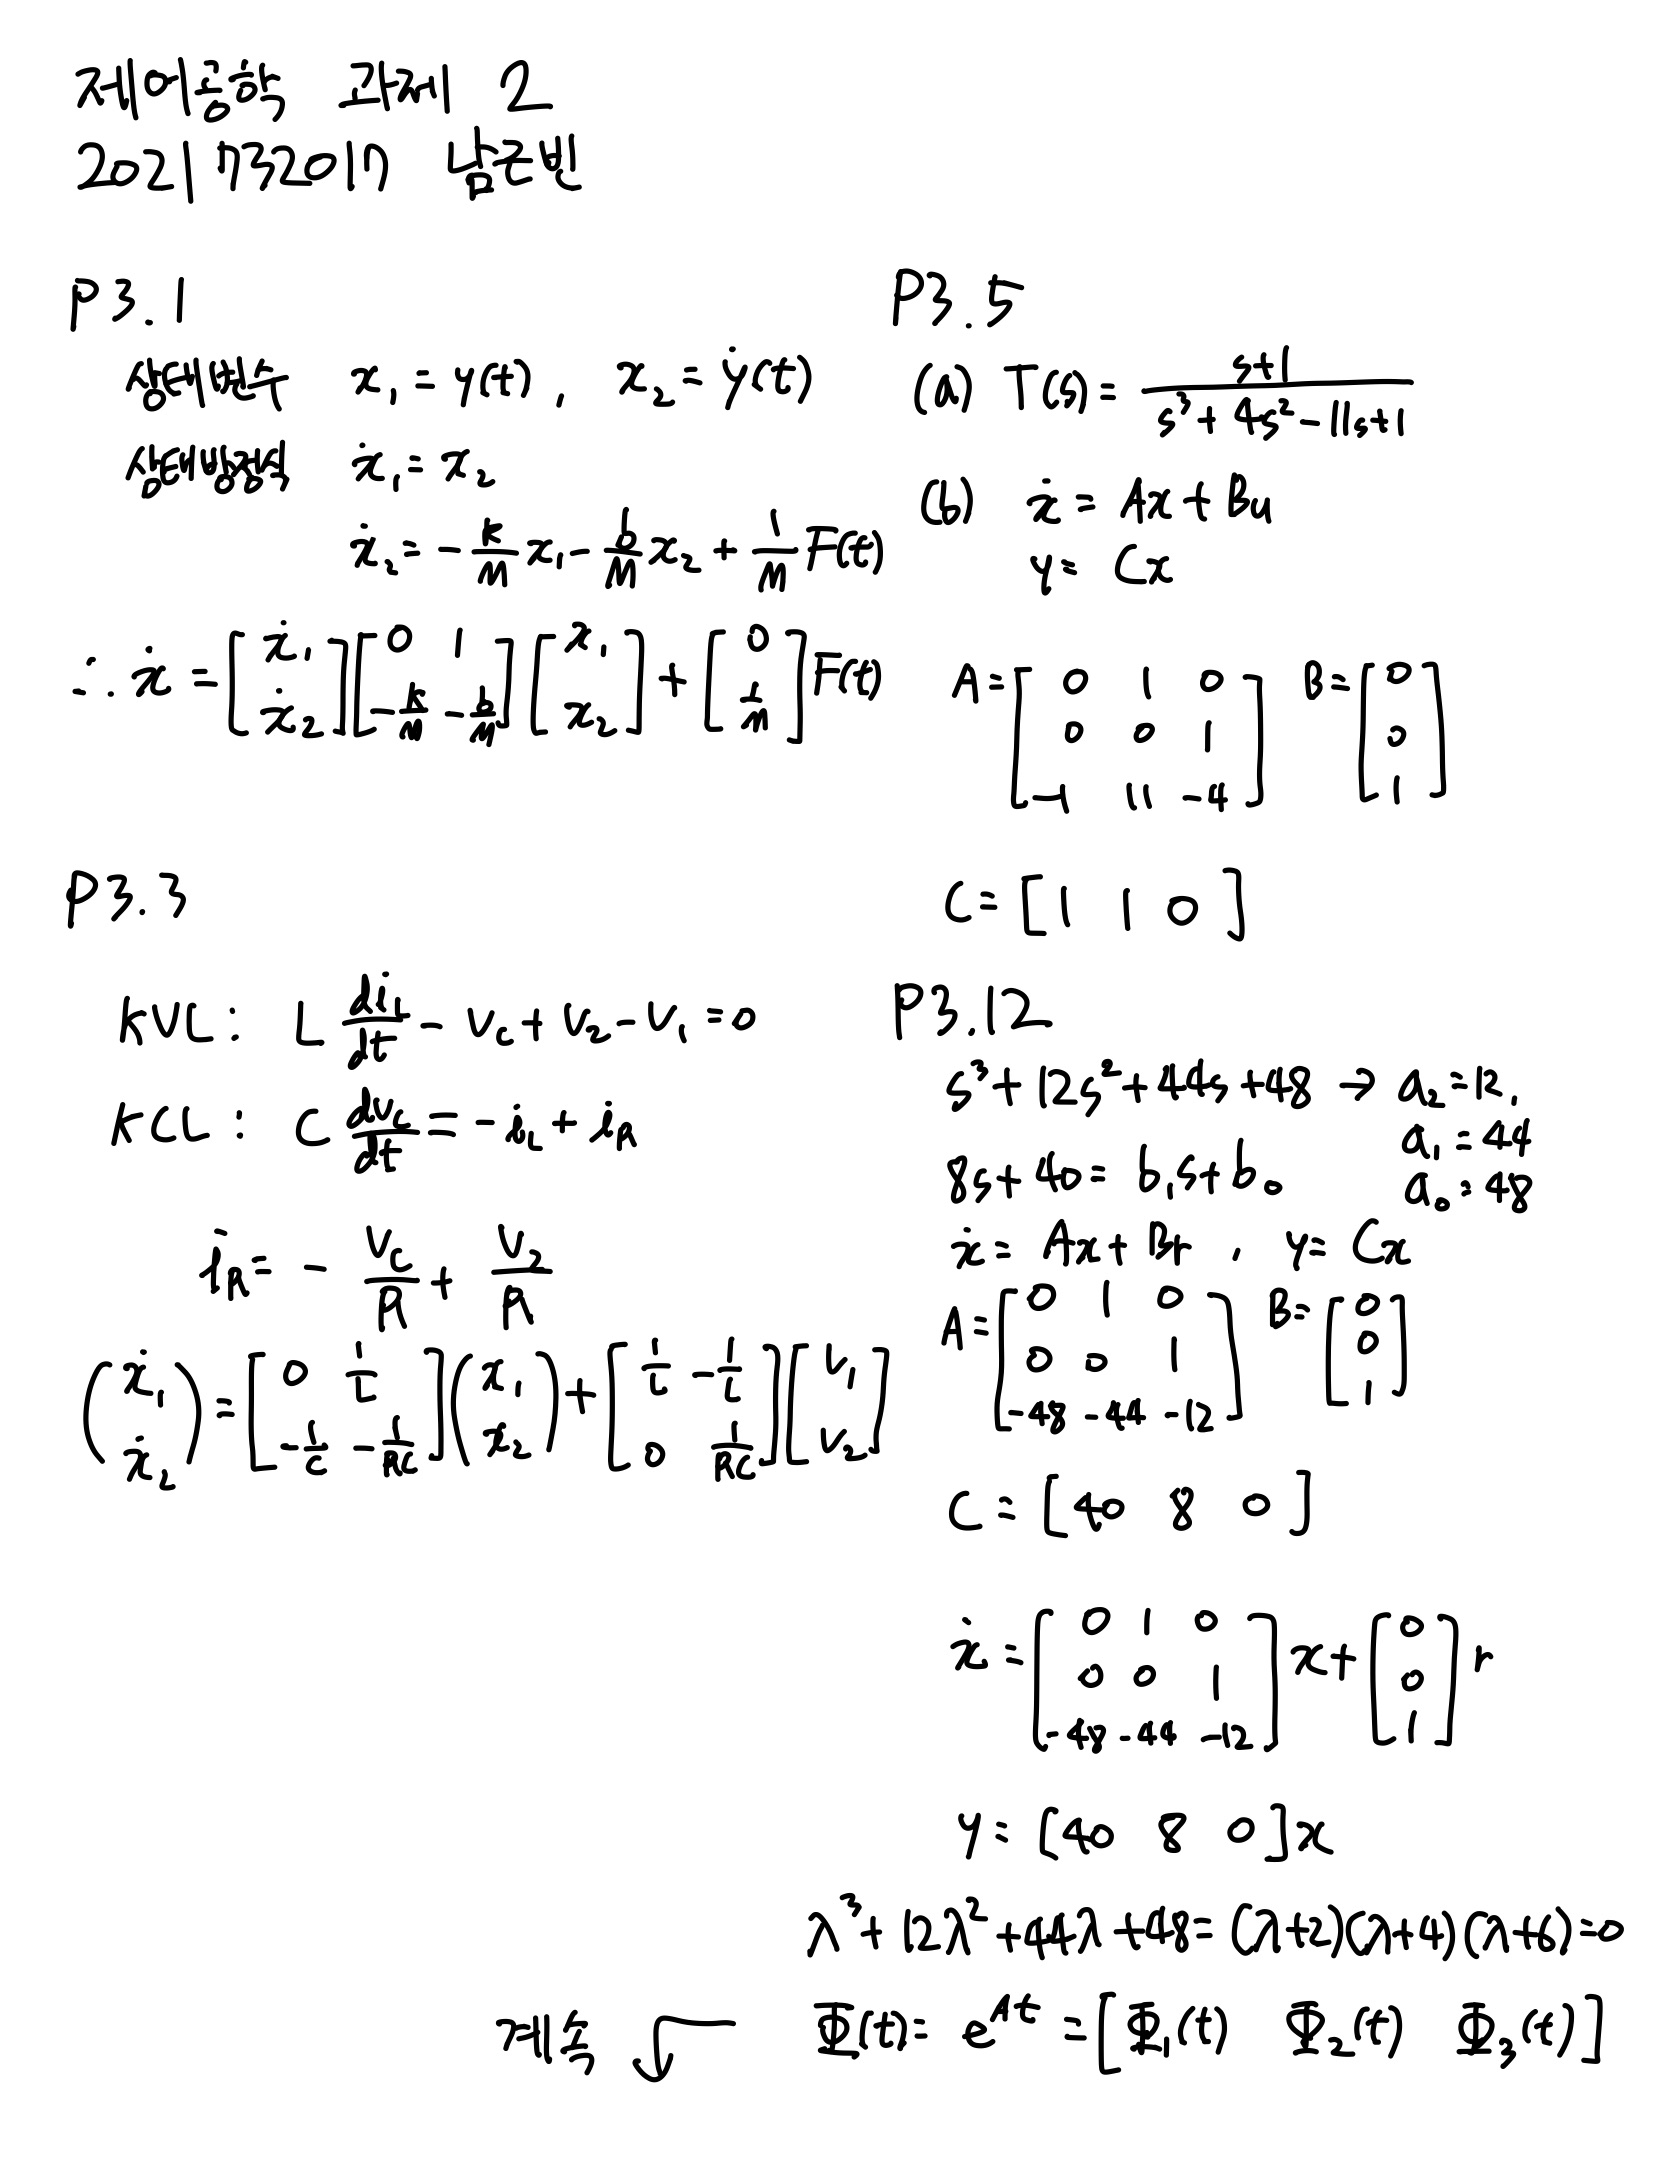 제어공학 과제 2
2021732017 남근빈
P3.1
상태변수 x₁ = y(t) , x₂ = ẏ(t)
상태방정식 ẋ₁ = x₂
ẋ₂ = -k/M x₁ - b/M x₂ + 1/M F(t)
∴ ẋ = [ẋ₁; ẋ₂][0 1; -k/M -b/M][x₁; x₂] + [0; 1/M]F(t)
P3.3
KVL: L di_L/dt - V_C + V₂ - V₁ = 0
KCL: C dV_C/dt = -i_L + i_R
i_R = - V_C/R + V₂/R
(ẋ₁; ẋ₂) = [0 1/L; -1/C -1/RC](x₁; x₂) + [1/L -1/L; 0 1/RC][V₁; V₂]
P3.5
(a) T(s) = (s+1)/(s³+4s²-11s+1)
(b) ẋ = Ax + Bu
y = Cx
A = [0 1 0; 0 0 1; -1 11 -4] B = [0; 0; 1]
C = [1 1 0]
P3.12
s³+12s²+44s+48 → a₂=12,
a₁=44
8s+40 = b₁s+b₀
a₀=48
ẋ = Ax + Br , y = Cx
A = [0 1 0; 0 0 1; -48 -44 -12] B = [0; 0; 1]
C = [40 8 0]
ẋ = [0 1 0; 0 0 1; -48 -44 -12]x + [0; 0; 1]r
y = [40 8 0]x
λ³+12λ²+44λ+48 = (λ+2)(λ+4)(λ+6)=0
Φ(t) = e^{At} = [Φ₁(t) Φ₂(t) Φ₃(t)]
계속